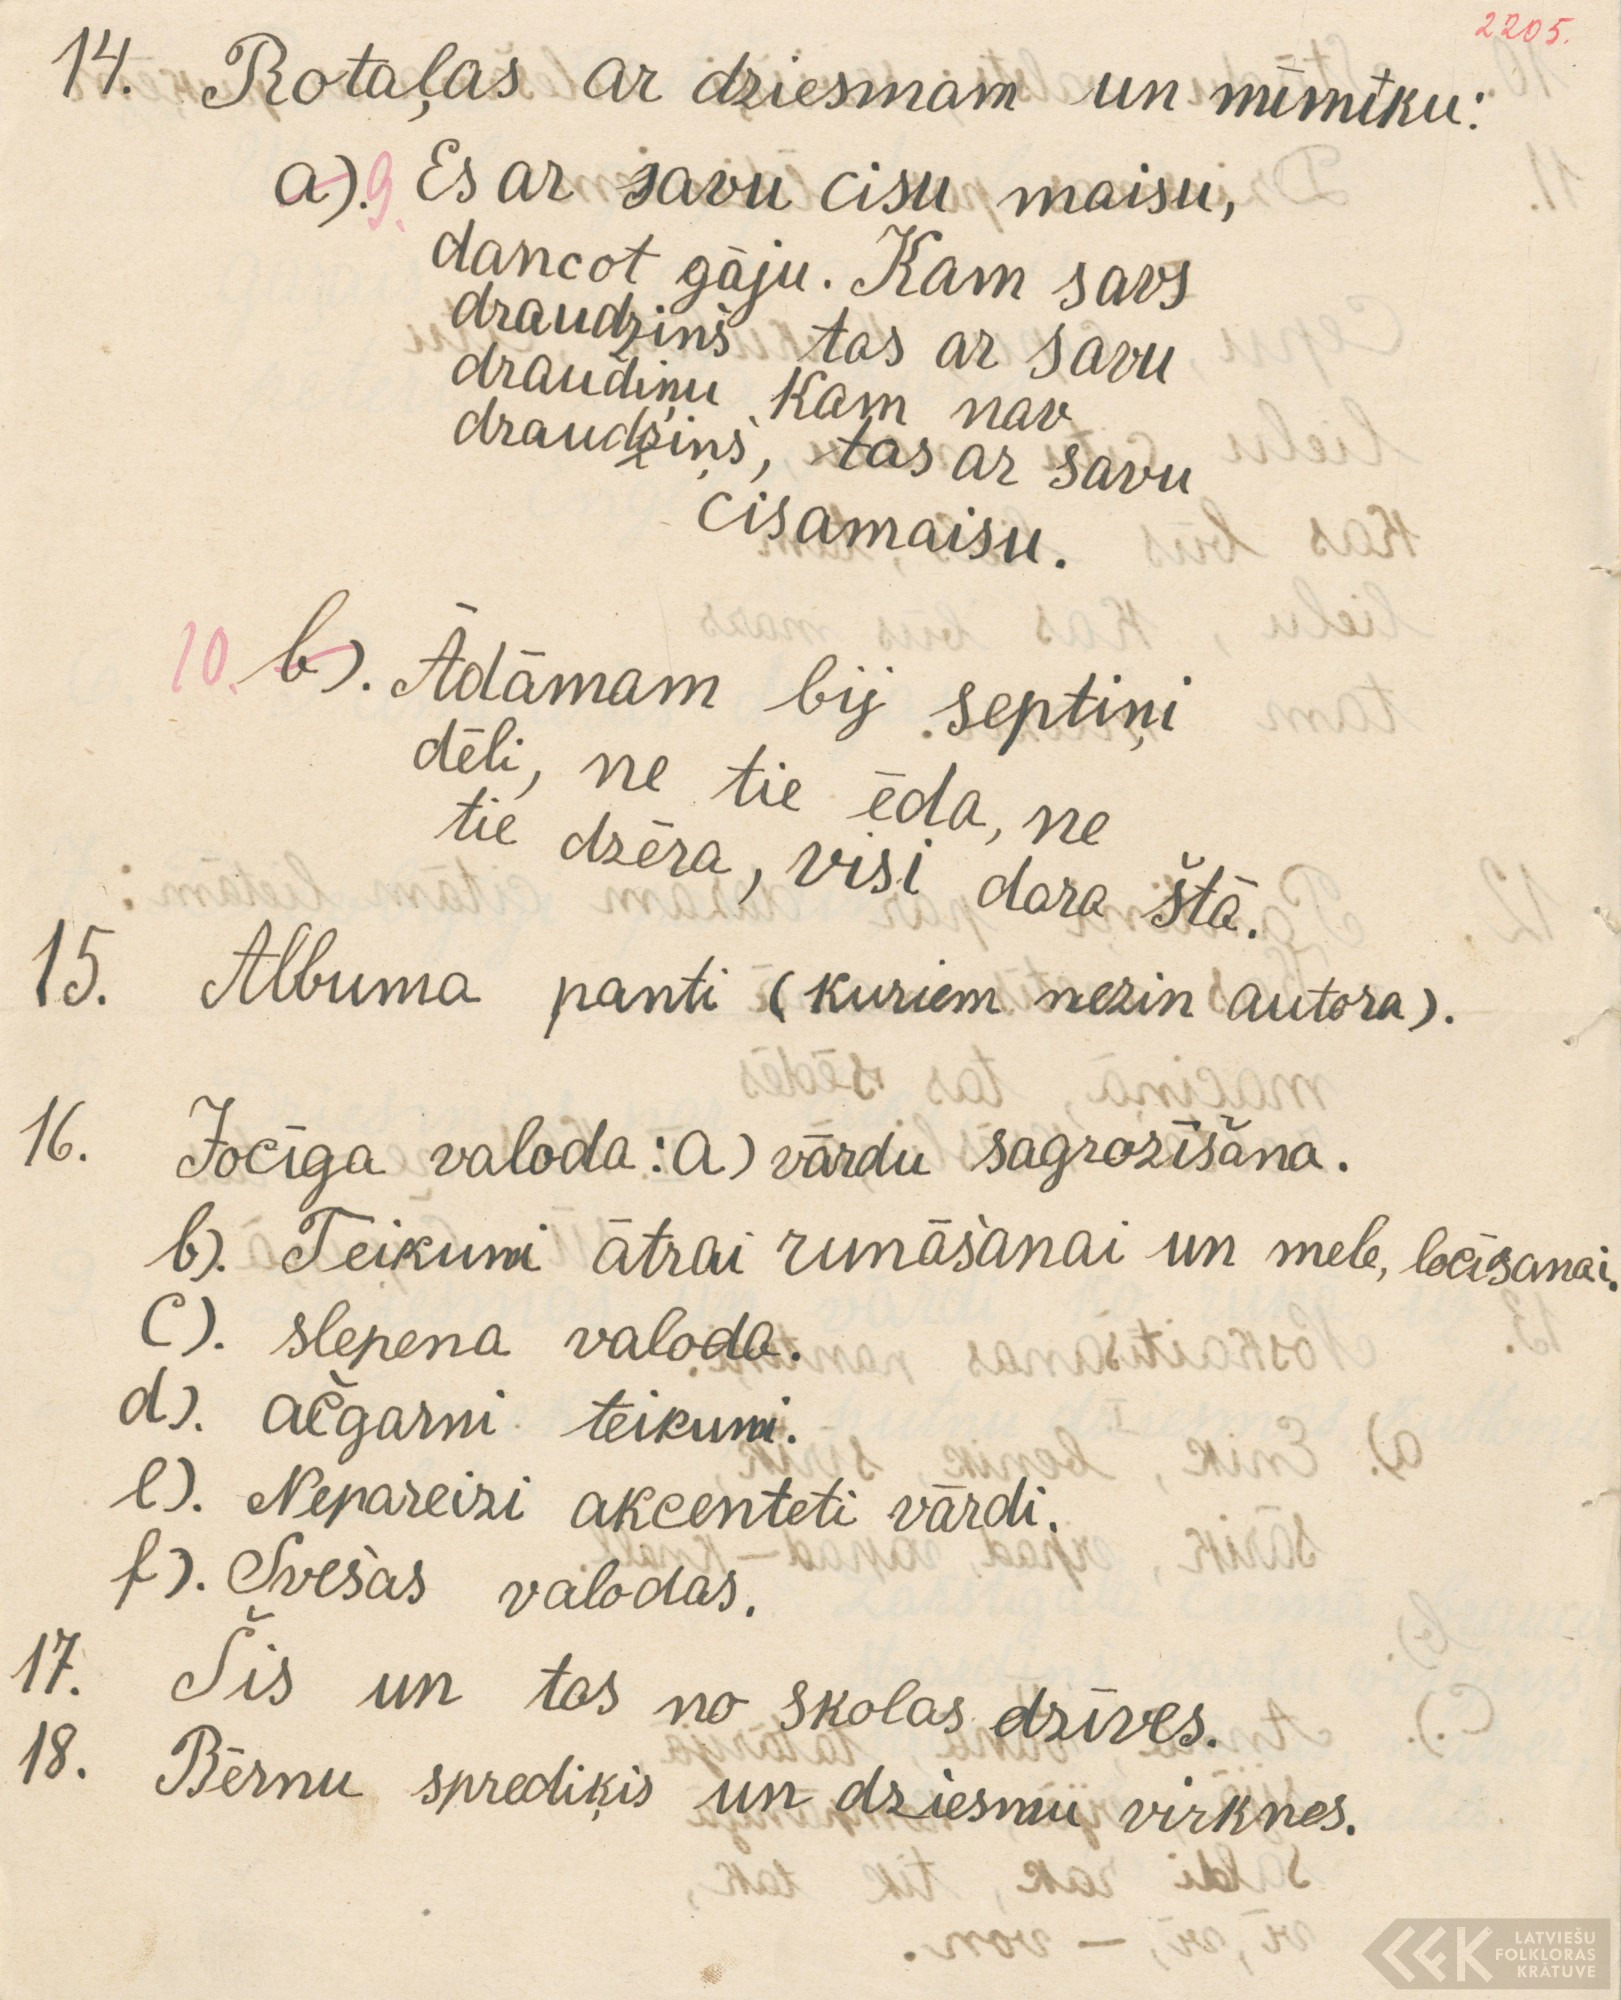 2205.
14. Rotaļas ar dziesmam un mīmiku:
a). 9. Es ar savu cisu maisu,
dancot gāju. Kam savs
draudziņš tas ar savu
draudiņu Kam nav
draudziņš, tas ar savu
cisamaisu.
10. b). Ādāmam bij septiņi
dēli, ne tie ēda, ne
tie dzēra, visi dara štā.
15. Albuma panti (kuriem nezin autora).
16. Jocīga valoda: a) vārdu sagrozīšana.
b). Teikumi ātrai runāšanai un mele, locīšanai.
c). slepena valoda.
d). ačgarni teikumi.
e). Nepareizi akcenteti vārdi.
f). Svešas valodas.
17. Šis un tas no skolas dzīves.
18. Bērnu sprediķis un dziesmu virknes.
LATVIEŠU
FOLKLORAS
KRĀTUVE